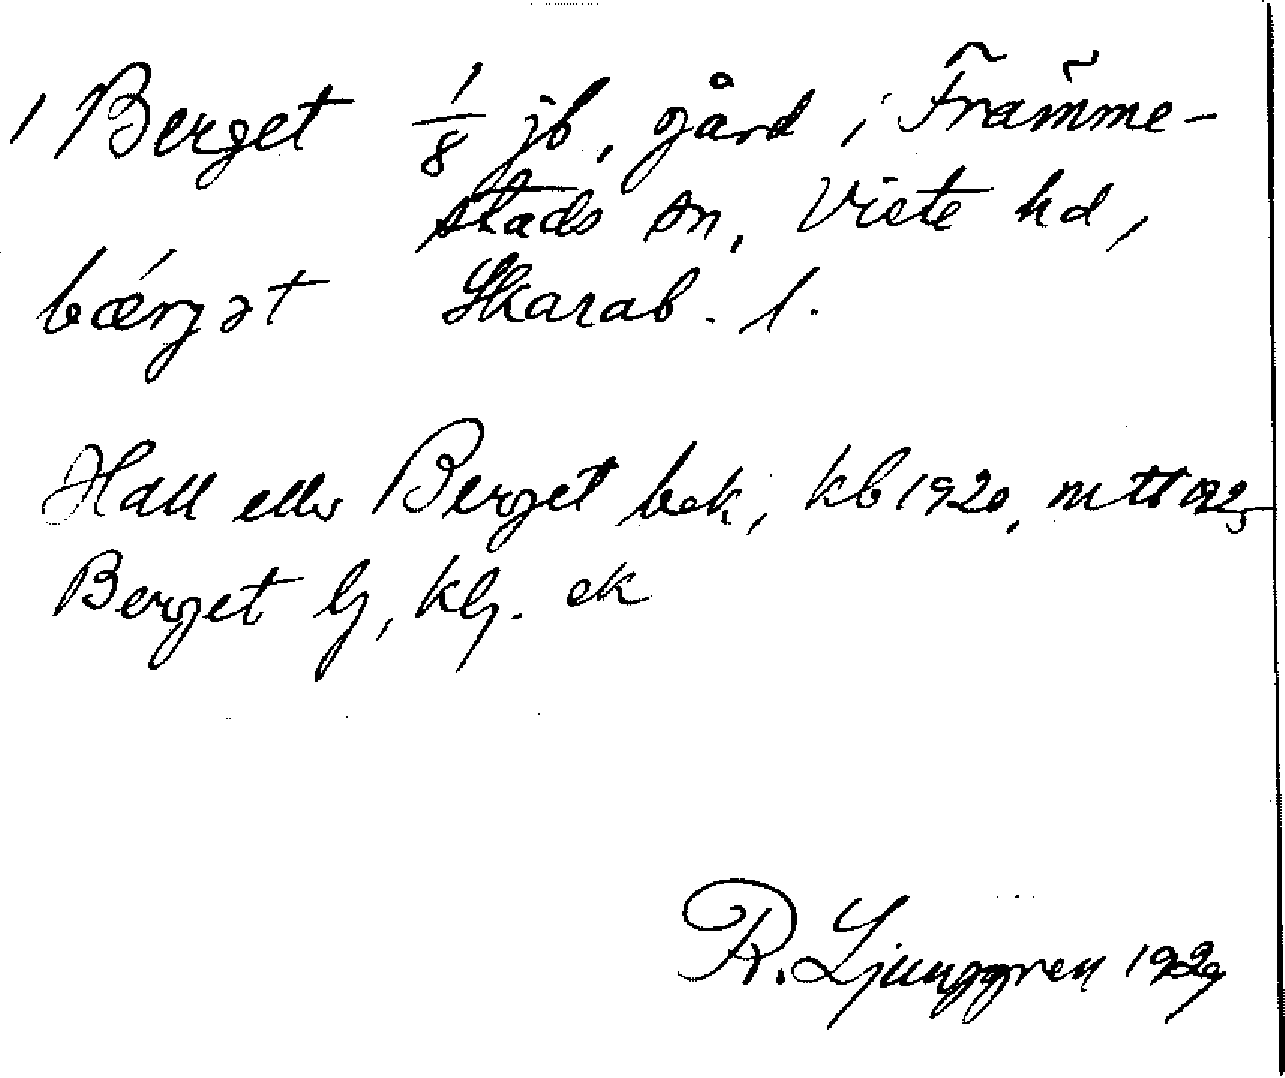 1 Berget 1/8 jb, gård i Främme-
stads sn, Viste hd,
bærjət Skarab. l.
Hall eller Berget bek, kb 1920,
Berget lj, kb. ek
R. Ljunggren 1929